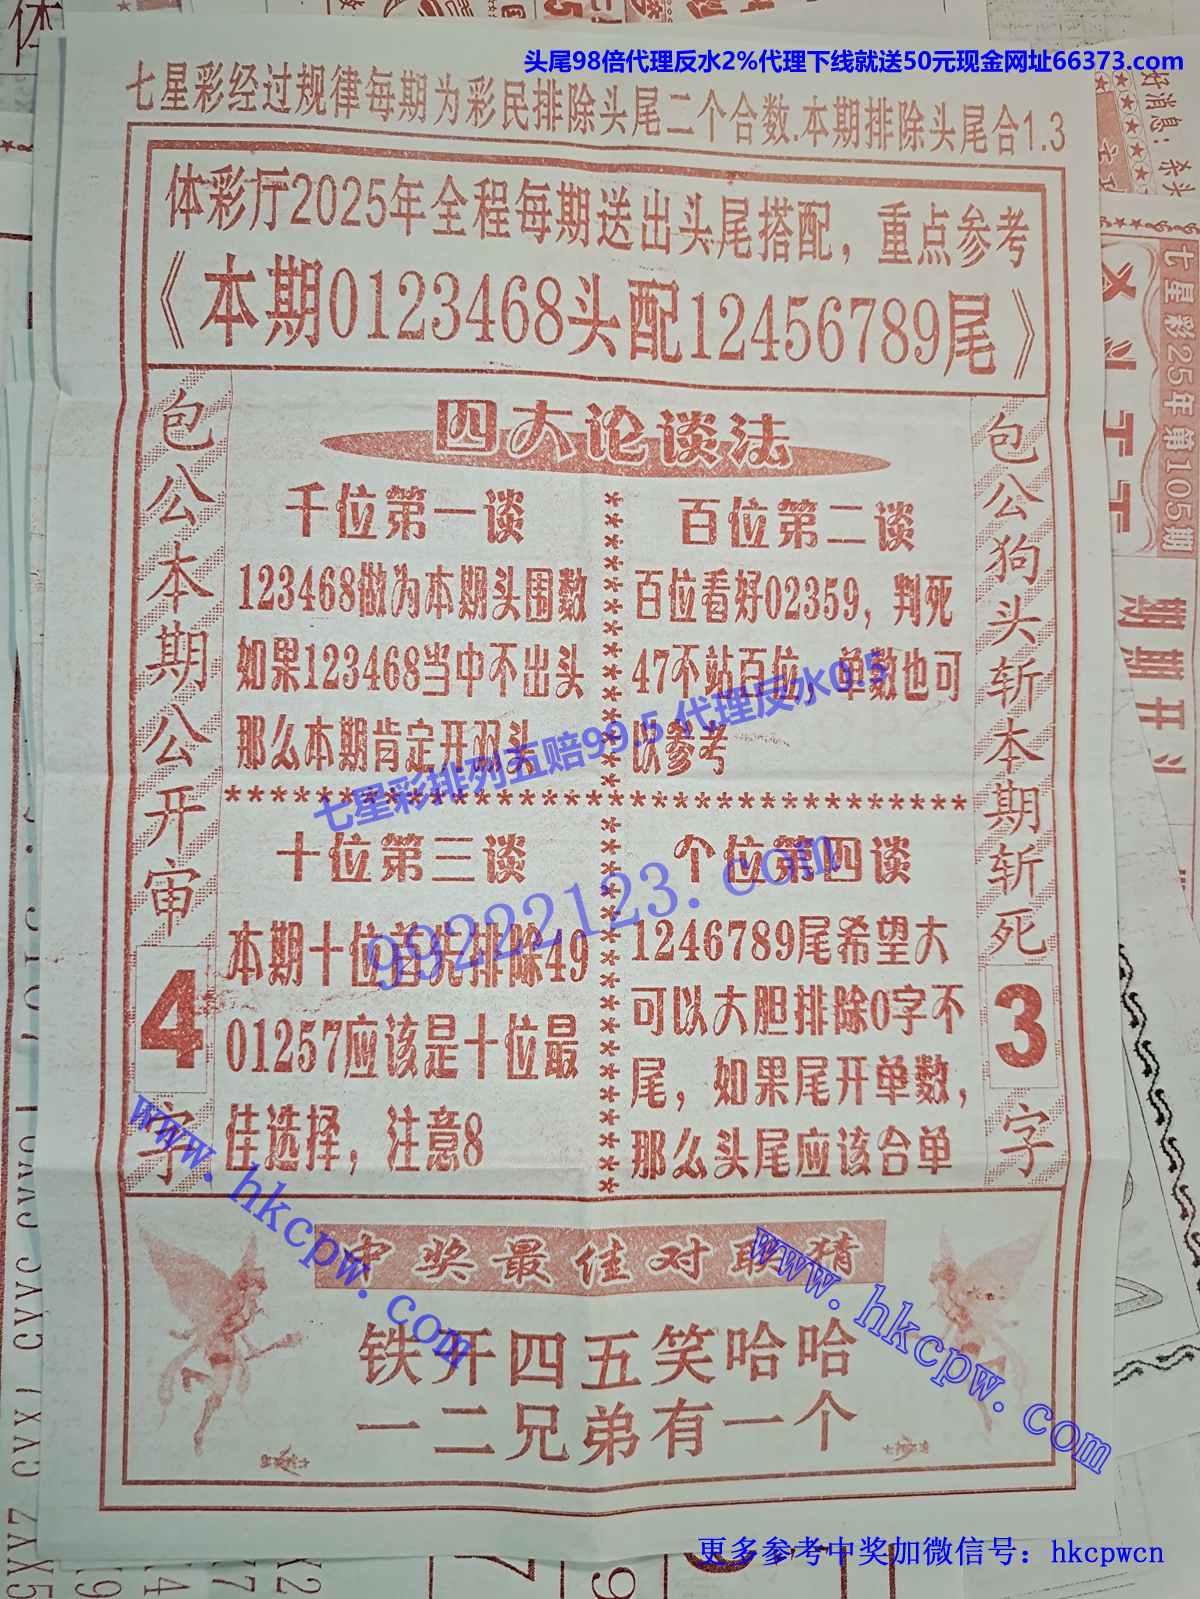 头尾98倍代理反水2%代理下线就送50元现金网址66373.com
七星彩经过规律每期为彩民排除头尾二个合数.本期排除头尾合1.3
体彩厅2025年全程每期送出头尾搭配，重点参考
《本期0123468头配12456789尾》
包公本期公开审
4
字
四大论谈法
千位第一谈
123468做为本期头围数
如果123468当中不出头
那么本期肯定开双头
百位第二谈
百位看好02359，判死
47不站百位，单数也可
以参考
七星彩排列五赔99.5 代理反水0.5
十位第三谈
本期十位首先排除49
01257应该是十位最
佳选择，注意8
个位第四谈
1246789尾希望大
可以大胆排除0字不
尾，如果尾开单数，
那么头尾应该合单
99222123.com
包公狗头斩本期斩死
3
字
www.hkcpw.com
www.hkcpw.com
中奖最佳对联猜
铁开四五笑哈哈
一二兄弟有一个
更多参考中奖加微信号：hkcpwcn
好消息：杀头
七星彩25年第105期
期期开